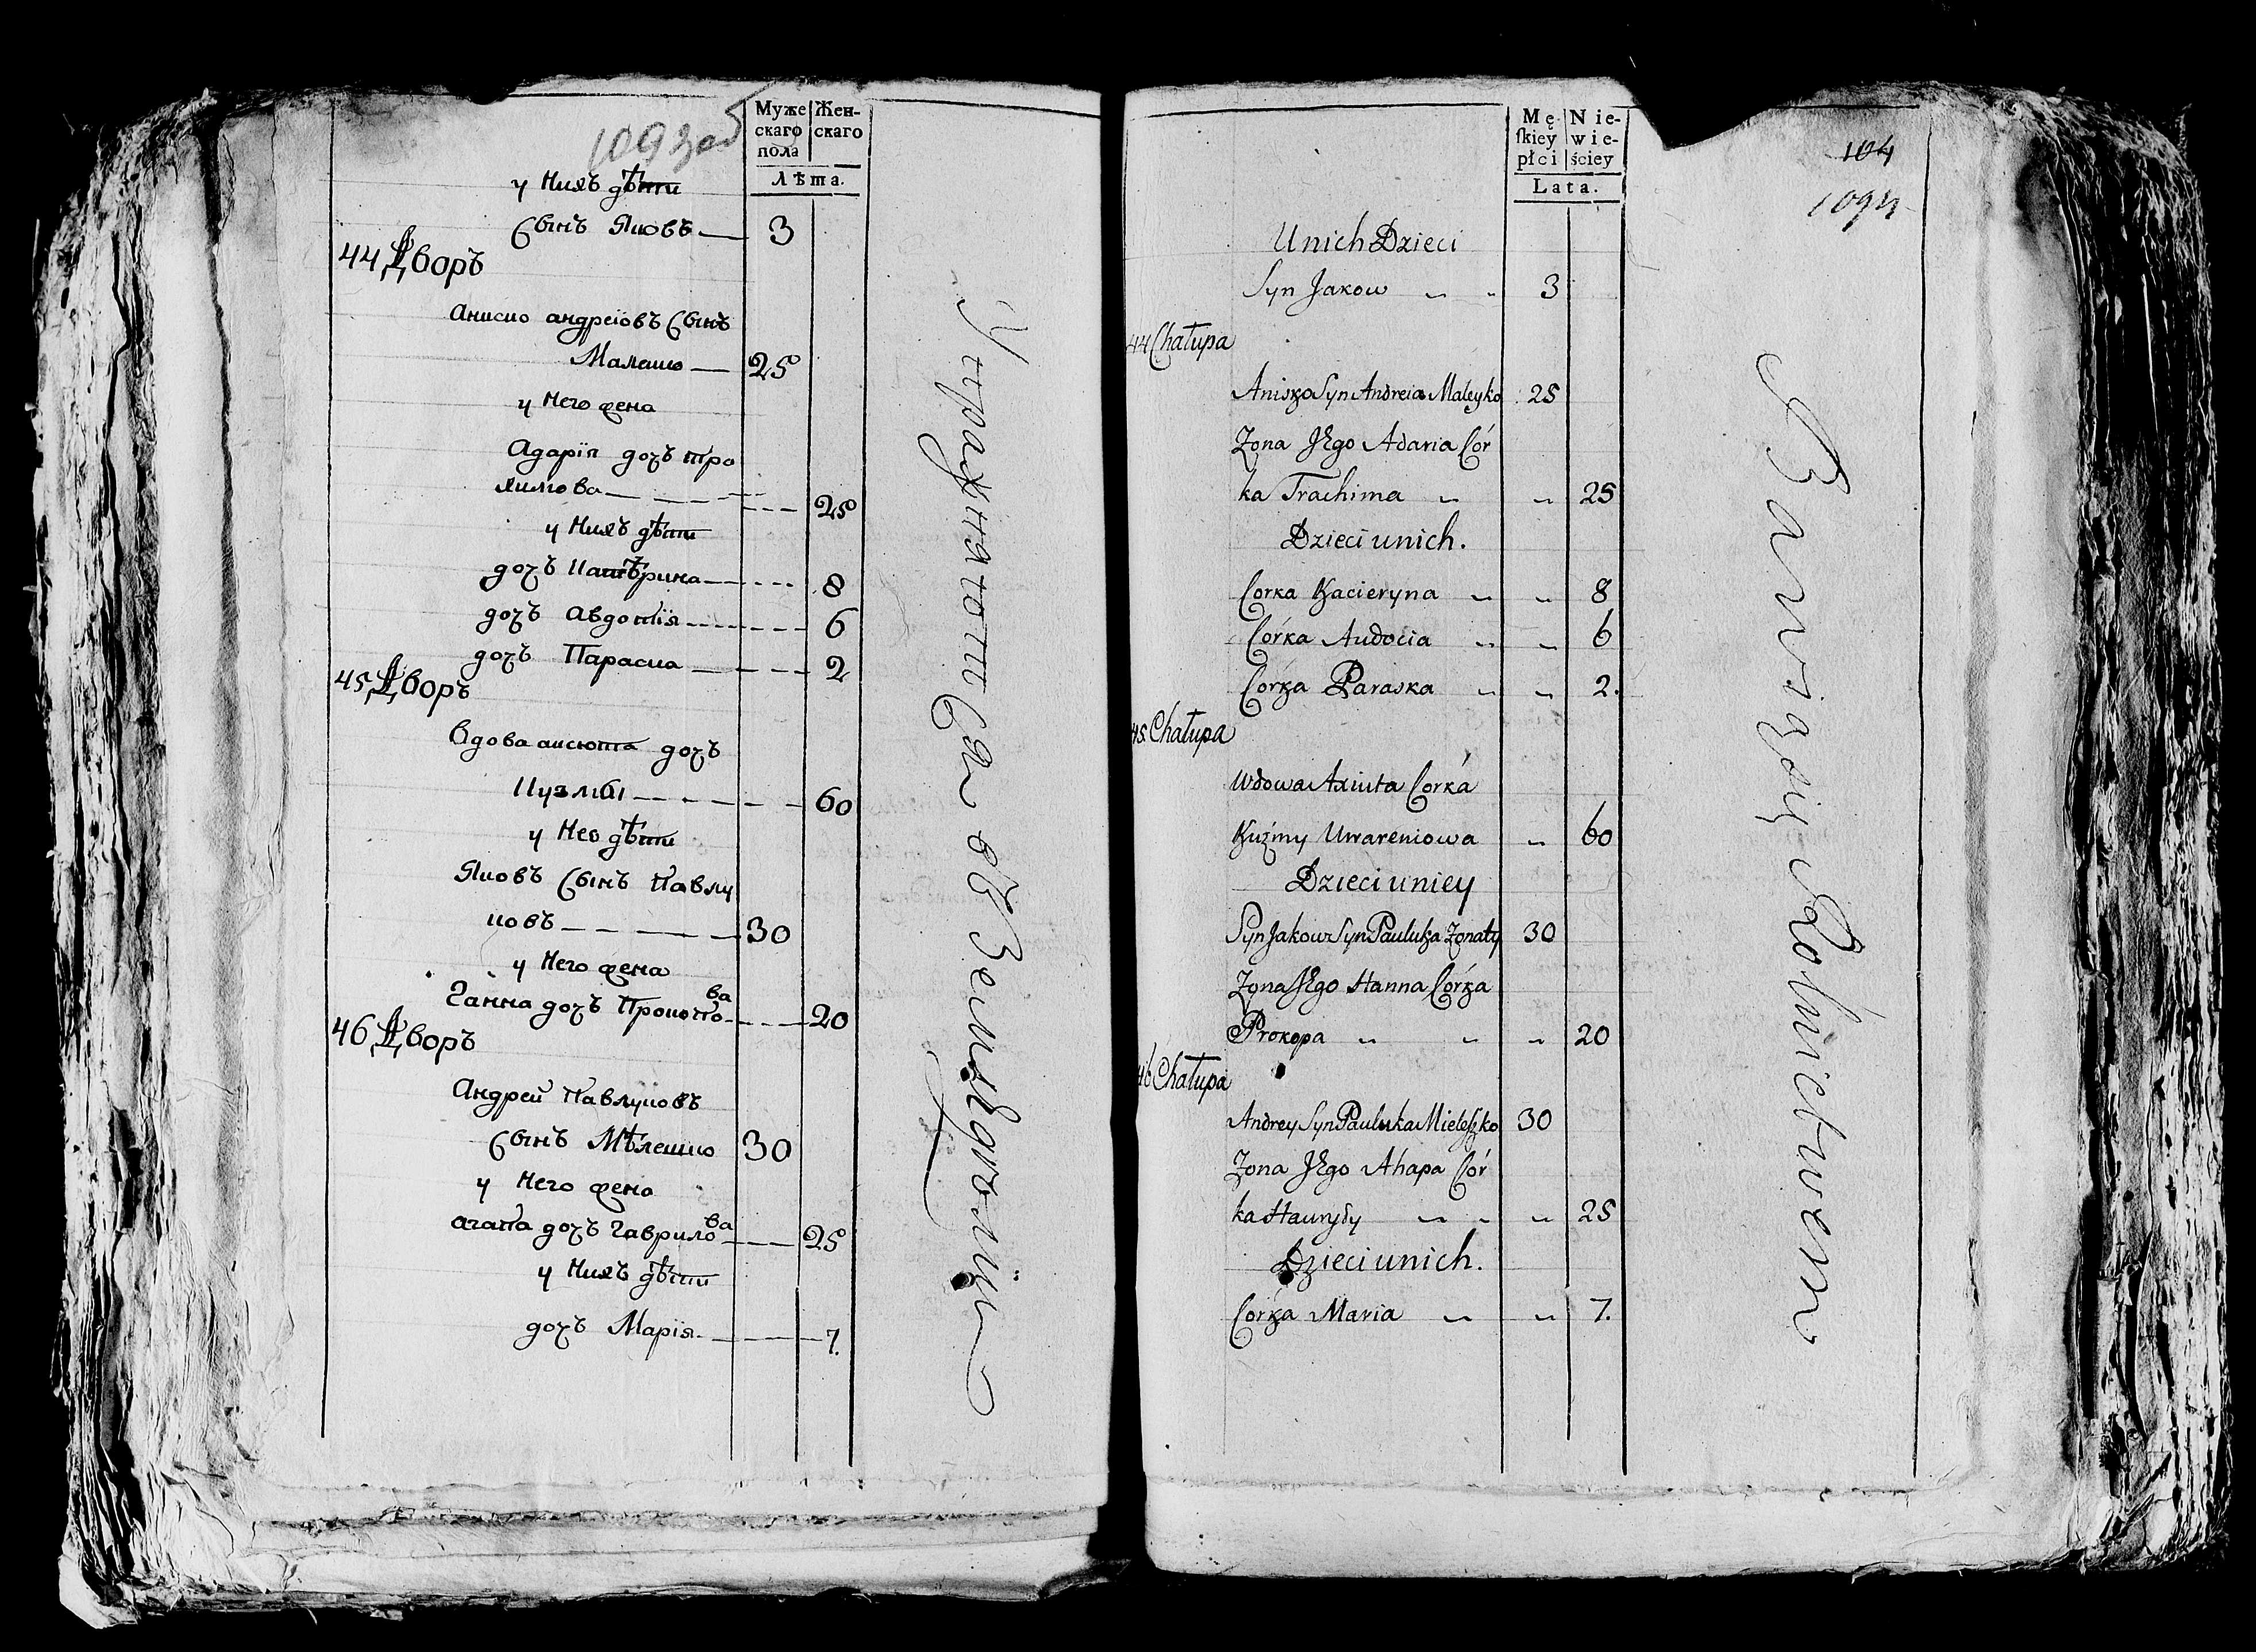 109 зад
Муже
скаго
пола
Жен-
скаго
Лѣта.
у Нихъ дѣти
Сынъ Яковъ 3
44 Дворъ
Аниско андреіовъ Сынъ
Малешко 25
у Него жена
Адарія дочъ тро
химова 25
у Нихъ дѣти
дочъ Катѣрина 8
дочъ Авдотія 6
дочъ Параска 2
45 Дворъ
Вдова аксюта дочъ
Кузмы 60
у Нео дѣти
Яковъ Сынъ Павлу
ковъ 30
у Него жена
Ганна дочъ Прокопова 20
46 Дворъ
Андрей Павлуковъ
Сынъ Мѣлешко 30
у Него жена
агапа дочъ Гаврилова 25
у Нихъ дѣти
дочъ Марія 7.
Упражняютися вЪ Земледѣліи
Mę-
ſkiey
płci
Nie-
wie-
ściey
Lata.
104
1094
Unich Dzieci
Syn Jakow 3
44 Chałupa
Aniszko Syn Andreia Maleyko 25
Zona JEgo Adaria Cór
ka Trachima 25
Dzieci unich.
Corka Kacieryna 8
Córka Audocia 6
Corka Paraska 2.
45 Chałupa
Wdowa Axiuta Corka
Kuźmy Uwareniowa 60
Dzieci uniey
Syn Jakow Syn Pauluka Zonaty 30
Zona JEgo Hanna Córka
Prokopa 20
46 Chałupa
Andrey Syn Pauluka Mieleszko 30
Zona JEgo Ahapa Cór
ka Hauryły 25
Dzieci unich.
Corka Maria 7.
Bawią się Rolnictwem